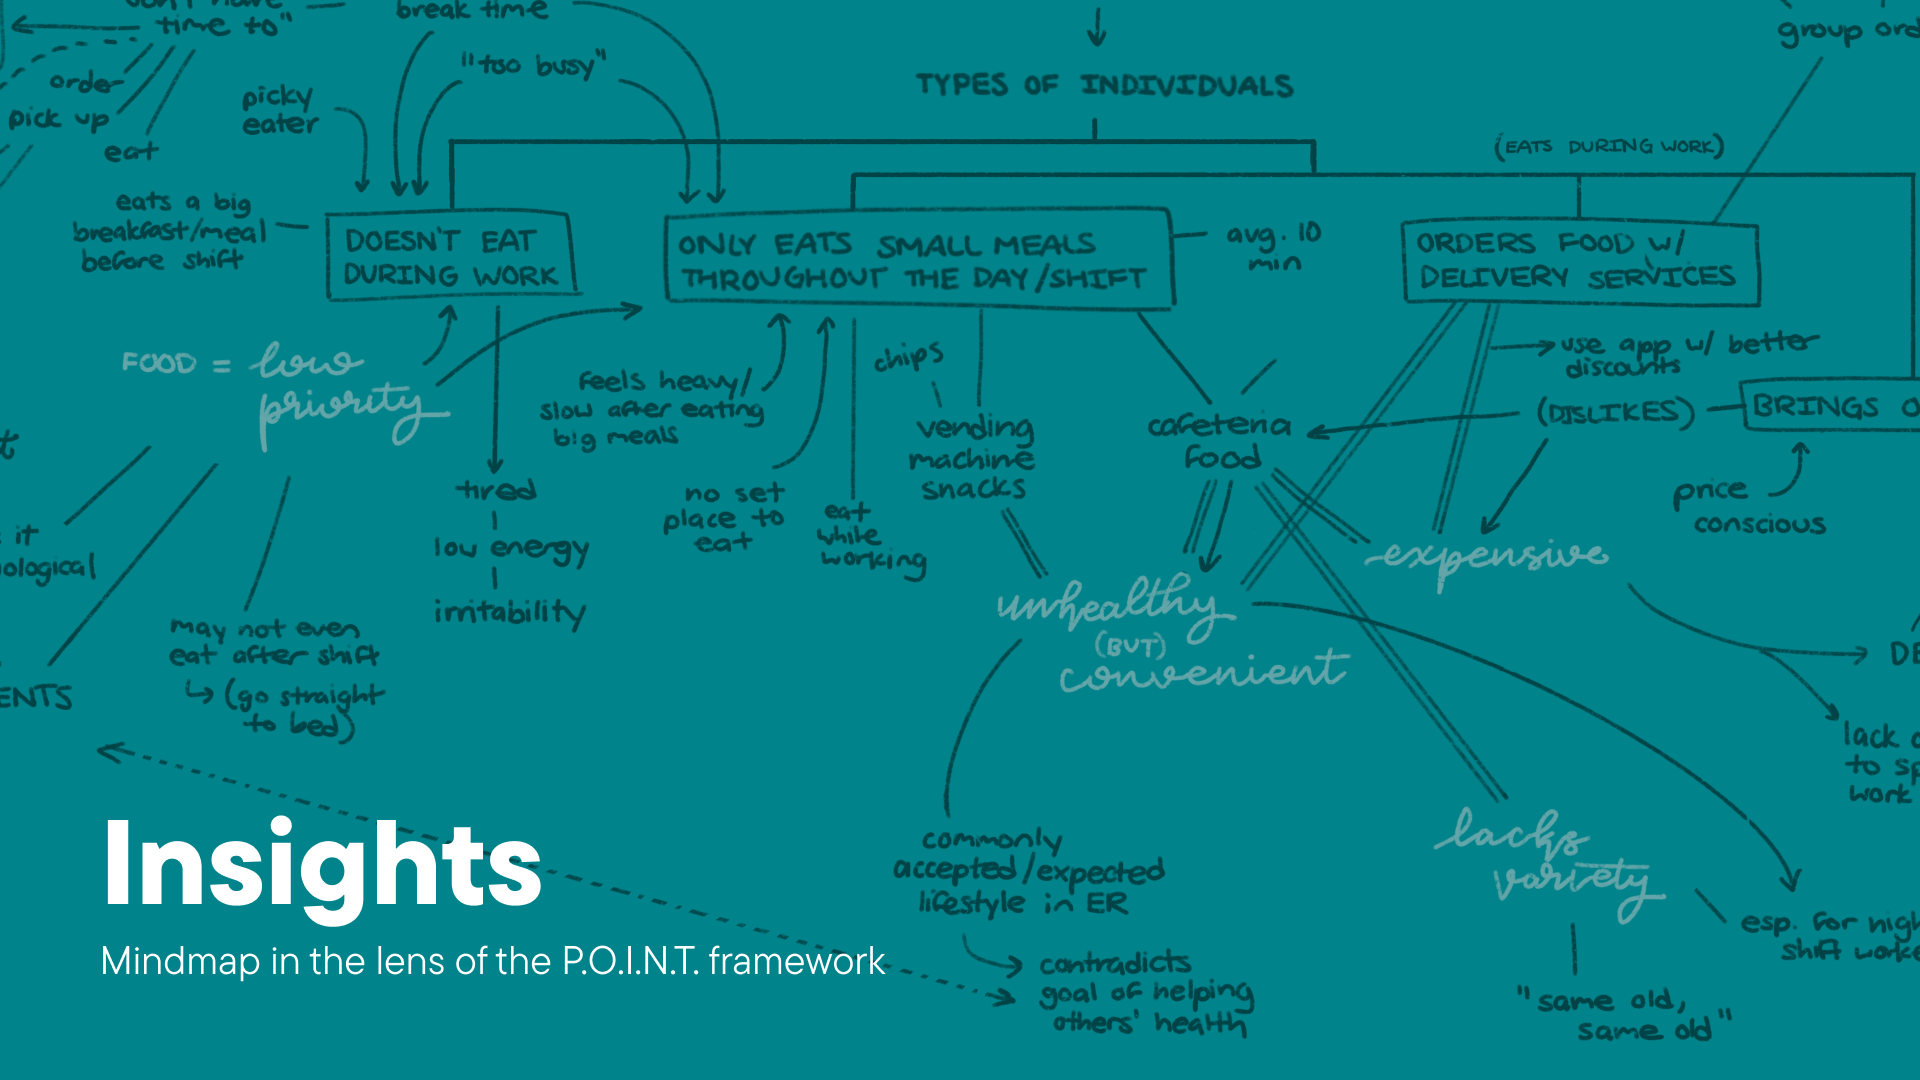 time to"
order
pick up
eat
break time
"too busy"
picky
eater
eats a big
breakfast/meal
before shift
TYPES OF INDIVIDUALS
group
(EATS DURING WORK)
DOESN'T EAT
DURING WORK
ONLY EATS SMALL MEALS
THROUGHOUT THE DAY/SHIFT
avg. 10
min
ORDERS FOOD W/
DELIVERY SERVICES
use app w/ better
discounts
(DISLIKES)
BRINGS
price
conscious
FOOD = low
priority
feels heavy/
slow after eating
big meals
no set
place to
eat
eat
while
working
chips
vending
machine
snacks
cafeteria
food
expensive
tired
low energy
irritability
it
may not even
eat after shift
(go straight
to bed)
unhealthy
(BUT)
convenient
lack
to
work
lacks
variety
esp. for
shift
"same old,
same old"
commonly
accepted/expected
lifestyle in ER
contradicts
goal of helping
others' health
Insights
Mindmap in the lens of the P.O.I.N.T. framework